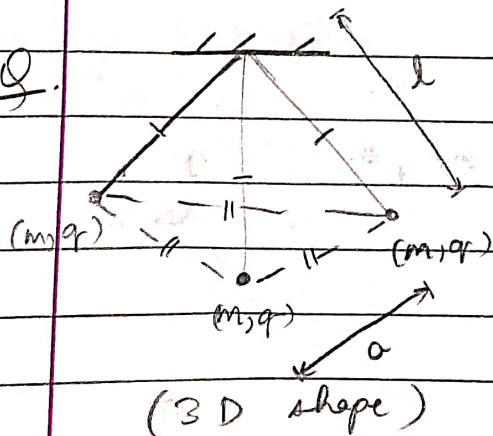 Q.
l
(m, q)
(m, q)
(m, q)
a
(3D shape)